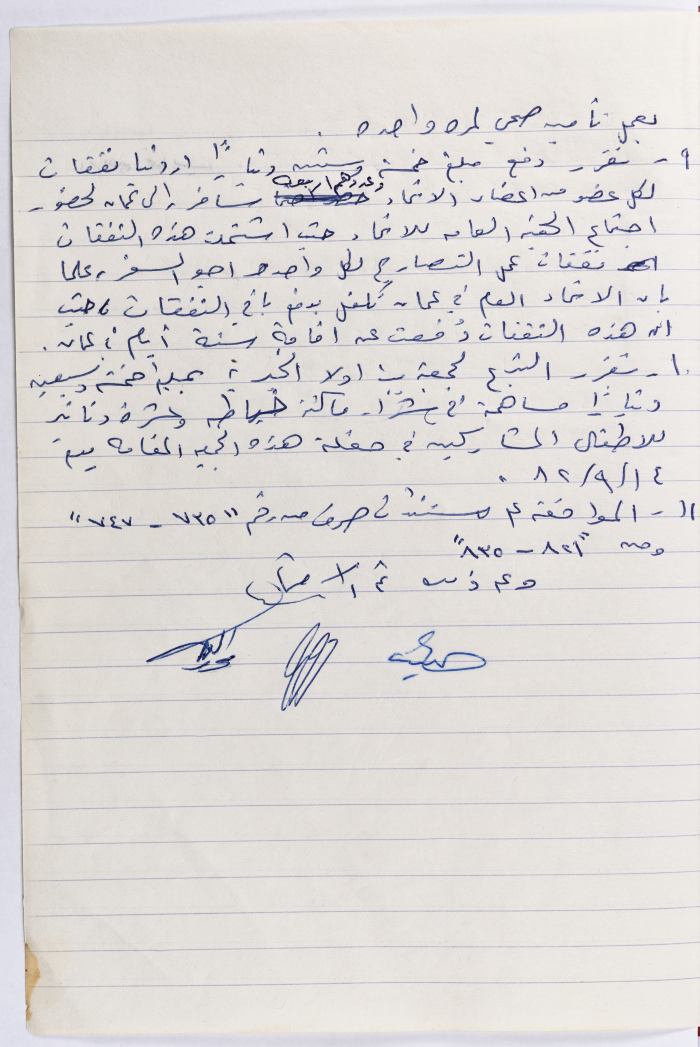 بعمل تأمين صحي لمره واحده .
٩- تقرر دفع مبلغ خمسة وستين دينارًا اردنيا نفقات
لكل عضو من اعضاء الاتحاد وعددهم الاربعة سافر الى عمان لحضور
اجتماع الهيئه العامه للاتحاد حيث اشتملت هذه النفقات
نفقات عمل التصاريح لكل واحده اجور السفر، علما
بان الاتحاد العام في عمان تكفل بدفع باقي النفقات حيث
ان هذه النفقات دفعت عن اقامة ستة أيام في عمان .
١٠- تقرر التبرع لجمعية الخيرية بمبلغ خمسة وسبعين
دينارًا مساهمة في شراء ماكنة خياطه وعشرة دنانير
للاطفال المشاركين في حفلة هذه الجمعيه المقامه يوم
١٤/٩/٨٢ .
١١- الموافقه على مستندات صرف من رقم "٧٣٥ - ٧٤٧"
ومن "٨٢١ - ٨٣٥"
وعلى ذلك تم الامضاء